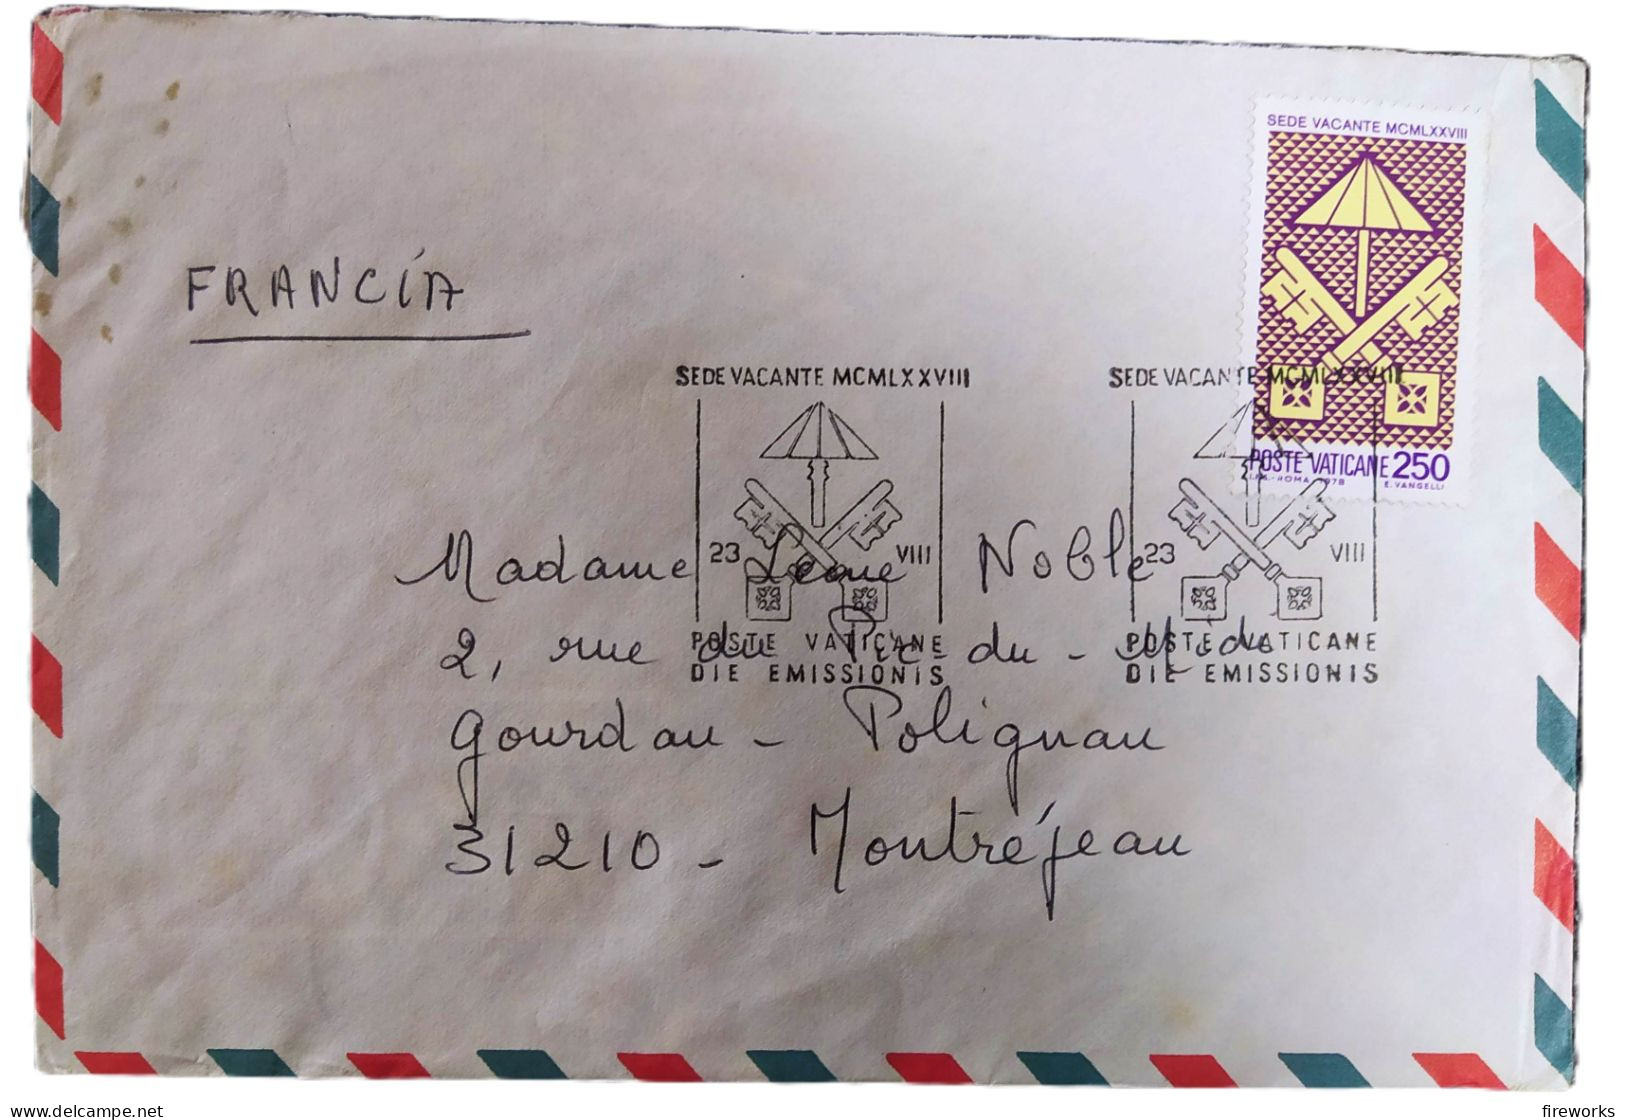 SEDE VACANTE MCMLXXVIII
FRANCÍA
SEDE VACANTE MCMLXXVIII
SEDE VACANTE MCMLXXVIII
POSTE VATICANE 250
I.P.S.-ROMA 1978 E. VANGELLI
23 VIII
23 VIII
Madame Léone Noble
2, rue du Pic-du-Midi
POSTE VATICANE
POSTE VATICANE
DIE EMISSIONIS
DIE EMISSIONIS
Gourdan - Polignan
31210 - Montréjeau
www.delcampe.net
fireworks